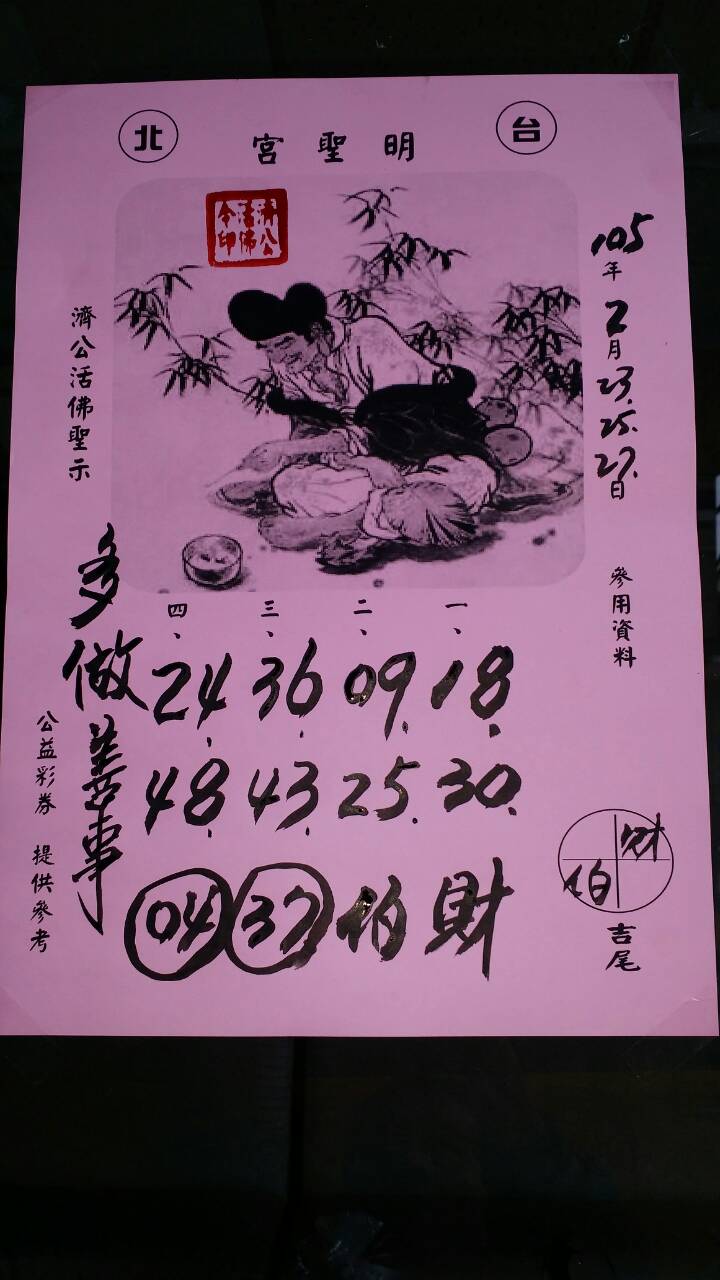 台北
明聖宮
濟公活佛令印
105年2月23.25.27.日
參用資料
濟公活佛聖示
一、二、三、四、
18. 09. 36. 24.
30. 25. 43. 48.
財 伯 37 04
多做善事
財
伯
吉尾
公益彩券 提供參考